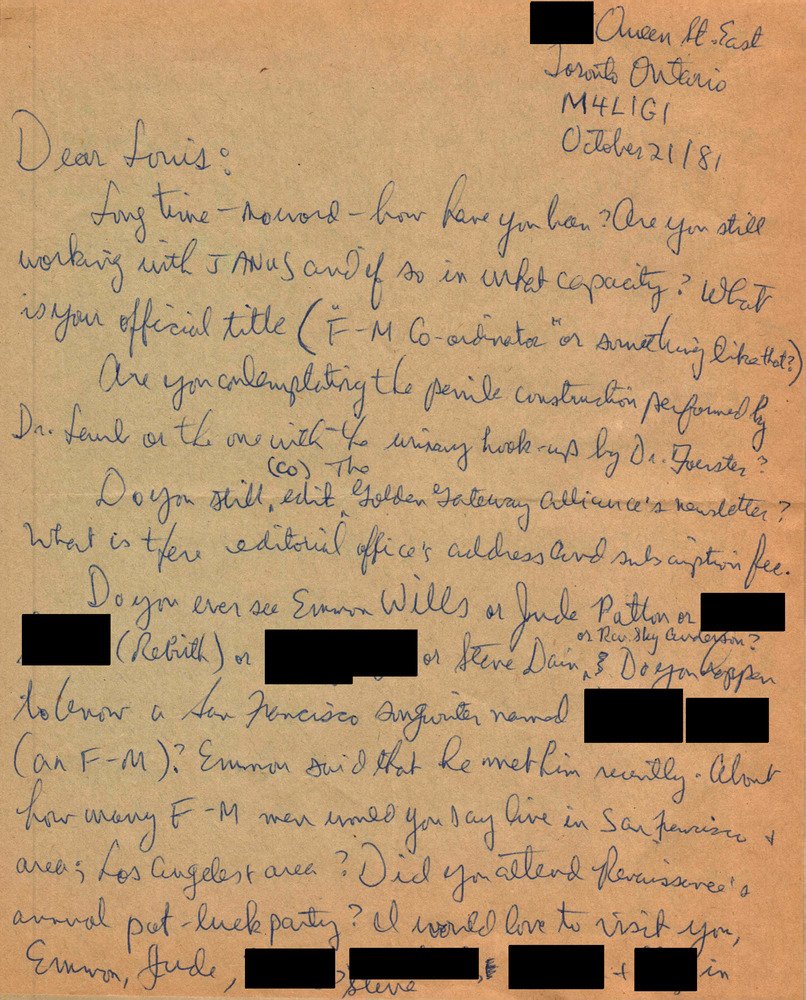 Queen St. East
Toronto Ontario
M4L1G1
October 21/81
Dear Louis:
Long time - no word - how have you been? Are you still
working with JANUS and if so in what capacity? What
is your official title ("F-M Co-ordinator" or something like that?)
Are you contemplating the penile construction performed by
Dr. Laub or the one with the urinary hook-up by Dr. Foerster?
(co) The
Do you still, edit, Golden Gateway Alliance's newsletter?
What is there editorial office's address and subscription fee.
Do you ever see Emmon Wills or Jude Patton or
or Rev. Sky Anderson?
(Rebirth) or or Steve Dain, & Do you happen
to know a San Francisco songwriter named
(an F-M)? Emmon said that he met him recently. About
how many F-M men would you say live in San Francisco +
area; Los Angeles + area? Did you attend Renaissance's
annual pot-luck party? I would love to visit you,
Emmon, Jude, , Steve + in